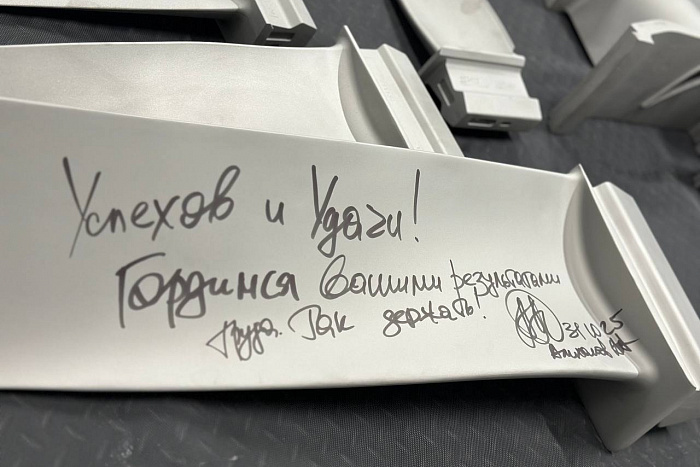 Успехов и Удачи!
Гордимся Вашими результатами
труда. Так держать!
31.10.25